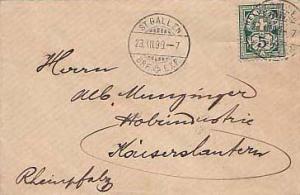 ST. GALLEN
23.III.99.-7
BRF. EXP.
5
Herrn
Alb. Munzinger
Hobeindustrie
Kaiserslautern
Rheinpfalz